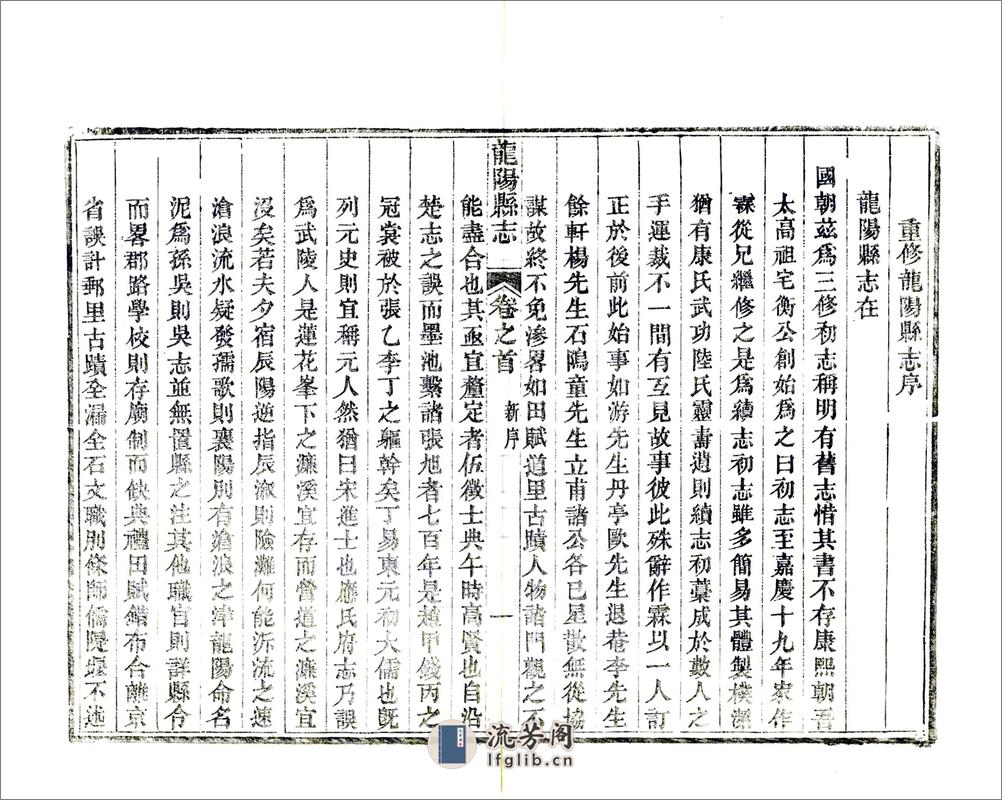 重修龍陽縣志序
龍陽縣志在
國朝茲爲三修初志稱明有舊志惜其書不存康熙朝吾
太高祖宅衡公創始爲之曰初志至嘉慶十九年家作
霖從兄繼修之是爲續志初志雖多簡易其體製樸深
猶有康氏武功陸氏靈壽遺則續志初藁成於數人之
手運裁不一間有互見故事彼此殊辭作霖以一人訂
正於後前此始事如游先生丹亭歐先生退菴李先生
餘軒楊先生石鳴童先生立甫諸公各已星散無從協
謀故終不免滲畧如田賦道里古蹟人物諸門觀之不
龍陽縣志
卷之首
新序
一
能盡合也其亟宜釐定者伍徵士典午時高賢也自沿
楚志之誤而墨池繫諸張旭者七百年是趙甲錢丙之
冠裳被於張乙李丁之軀幹矣丁易東元初大儒也旣
列元史則宜稱元人然猶曰宋進士也應氏府志乃誤
爲武陵人是蓮花峯下之濂溪宜存而營道之濂溪宜
沒矣若夫夕宿辰陽逆指辰漵則險灘何能泝流之速
滄浪流水疑發孺歌則襄陽別有滄浪之津龍陽命名
泥爲孫吳則吳志並無置縣之注其他職官則詳縣令
而畧郡路學校則存廟制而缺典禮田賦錯布合離京
省誤計郵里古蹟全漏金石文職則條師儒隄堰不述
流芳阁
lfglib.cn